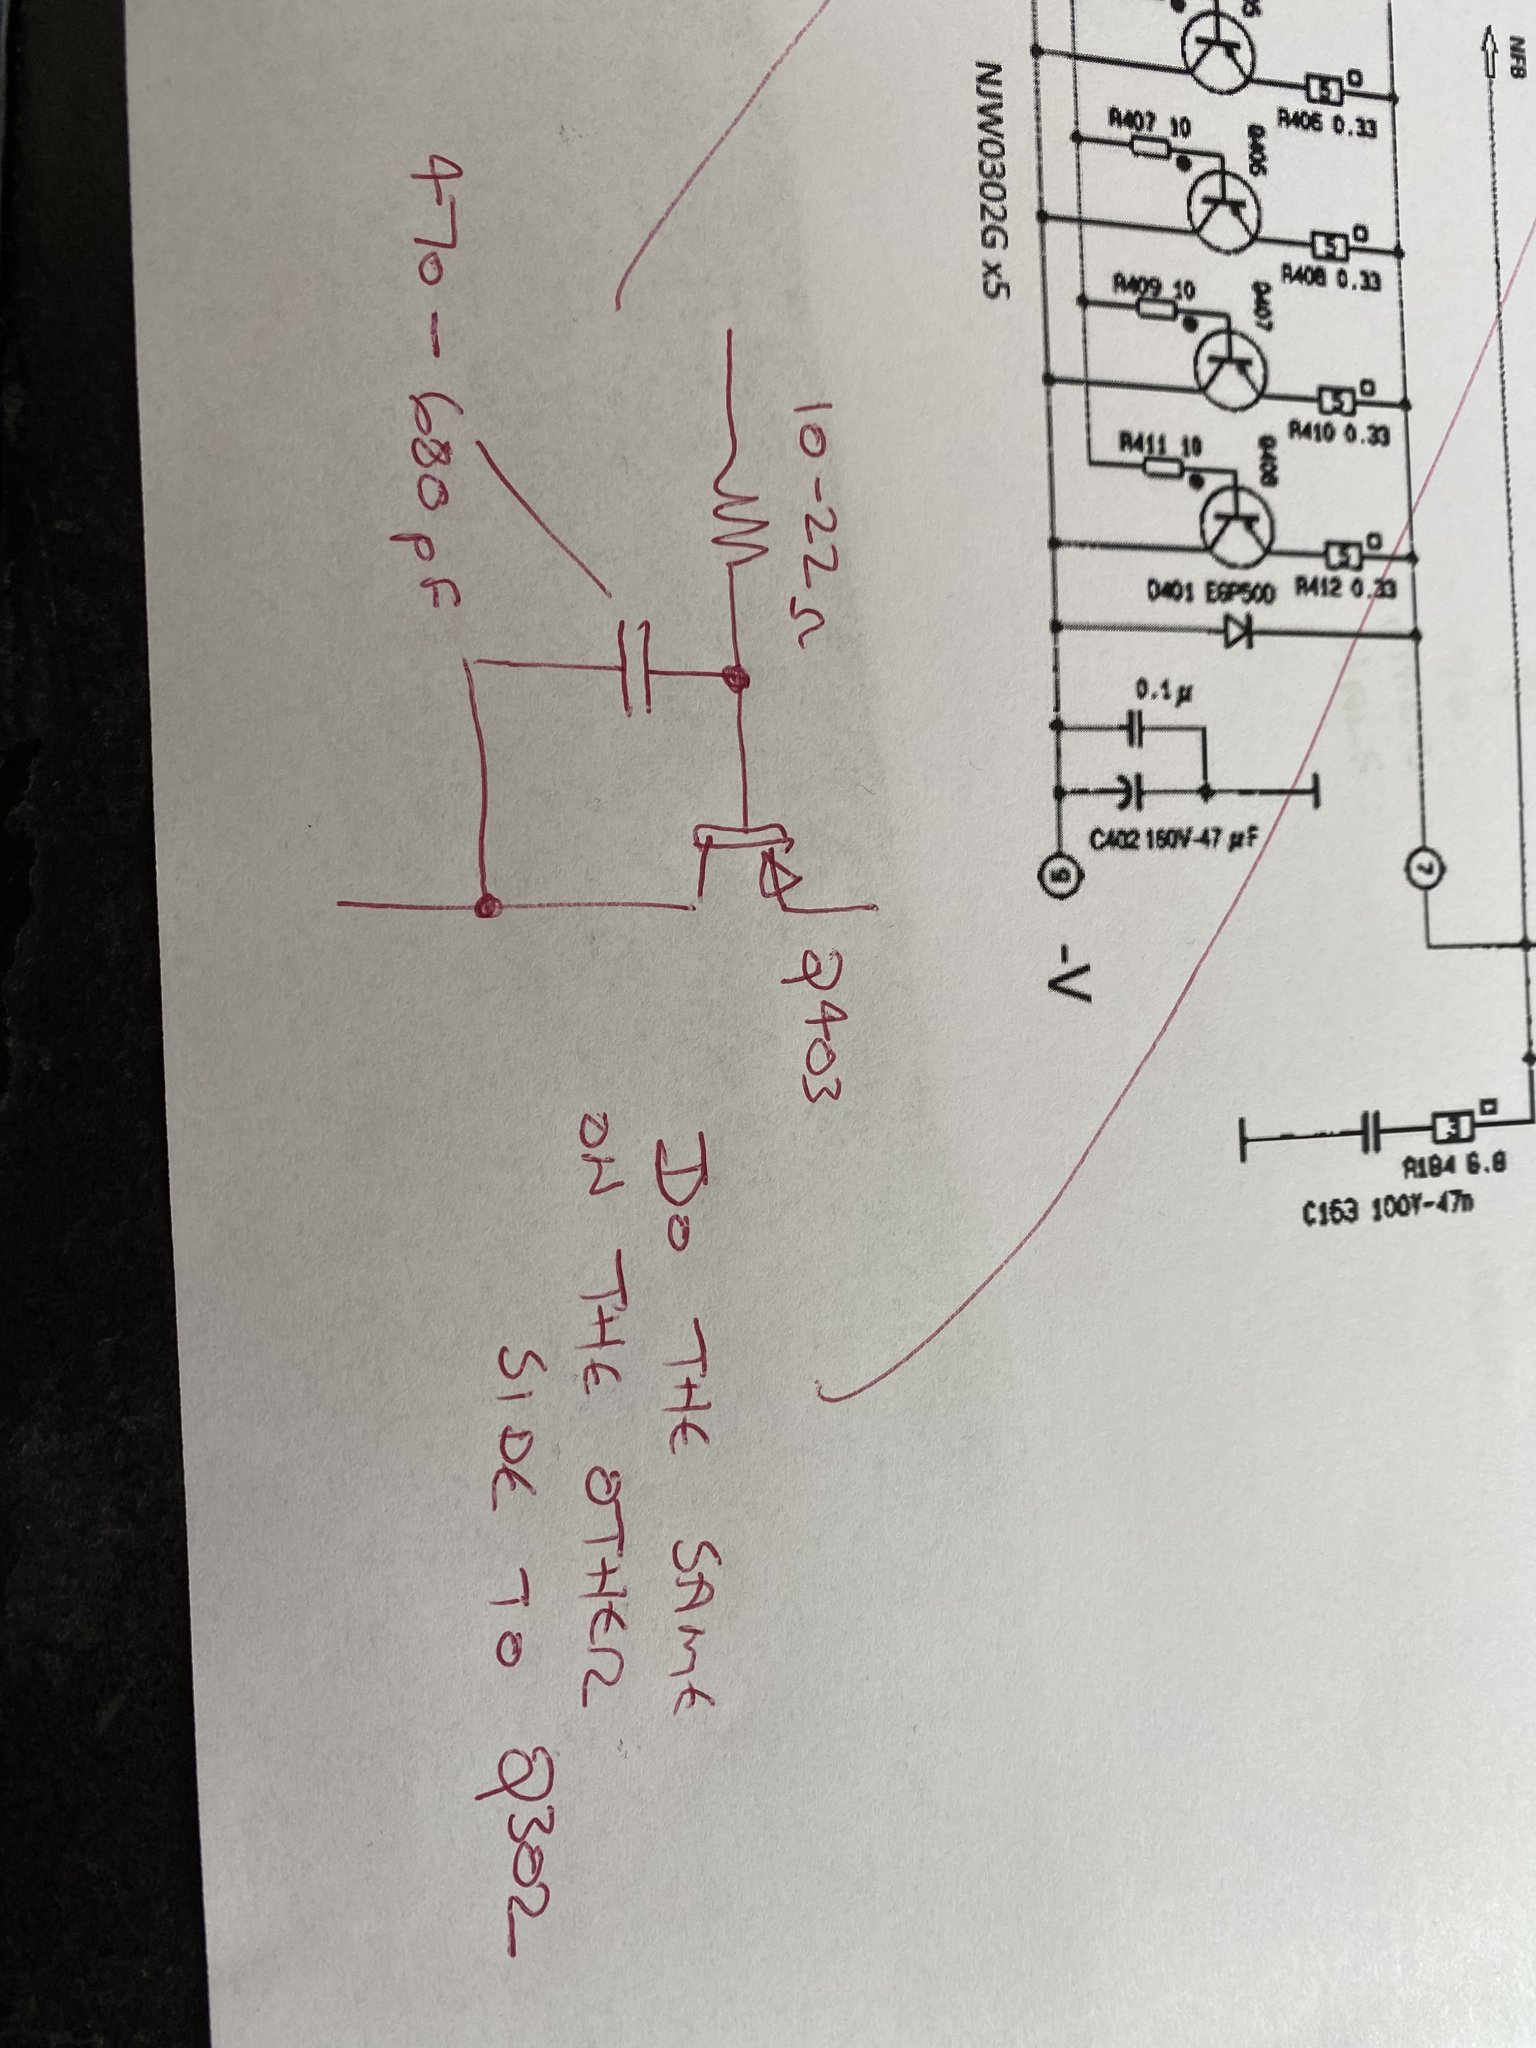 NFB
R406 0.33
R407 10
Q405
R408 0.33
NJW0302G x5
R409 10
Q407
R410 0.33
R411 10
R412 0.33
D401 EGP500
0.1μ
C402 160V-47μF
7
9
-V
R184 6.8
C163 100V-47n
10-22Ω
470-680pF
Q403
DO THE SAME
ON THE OTHER
SIDE TO Q302